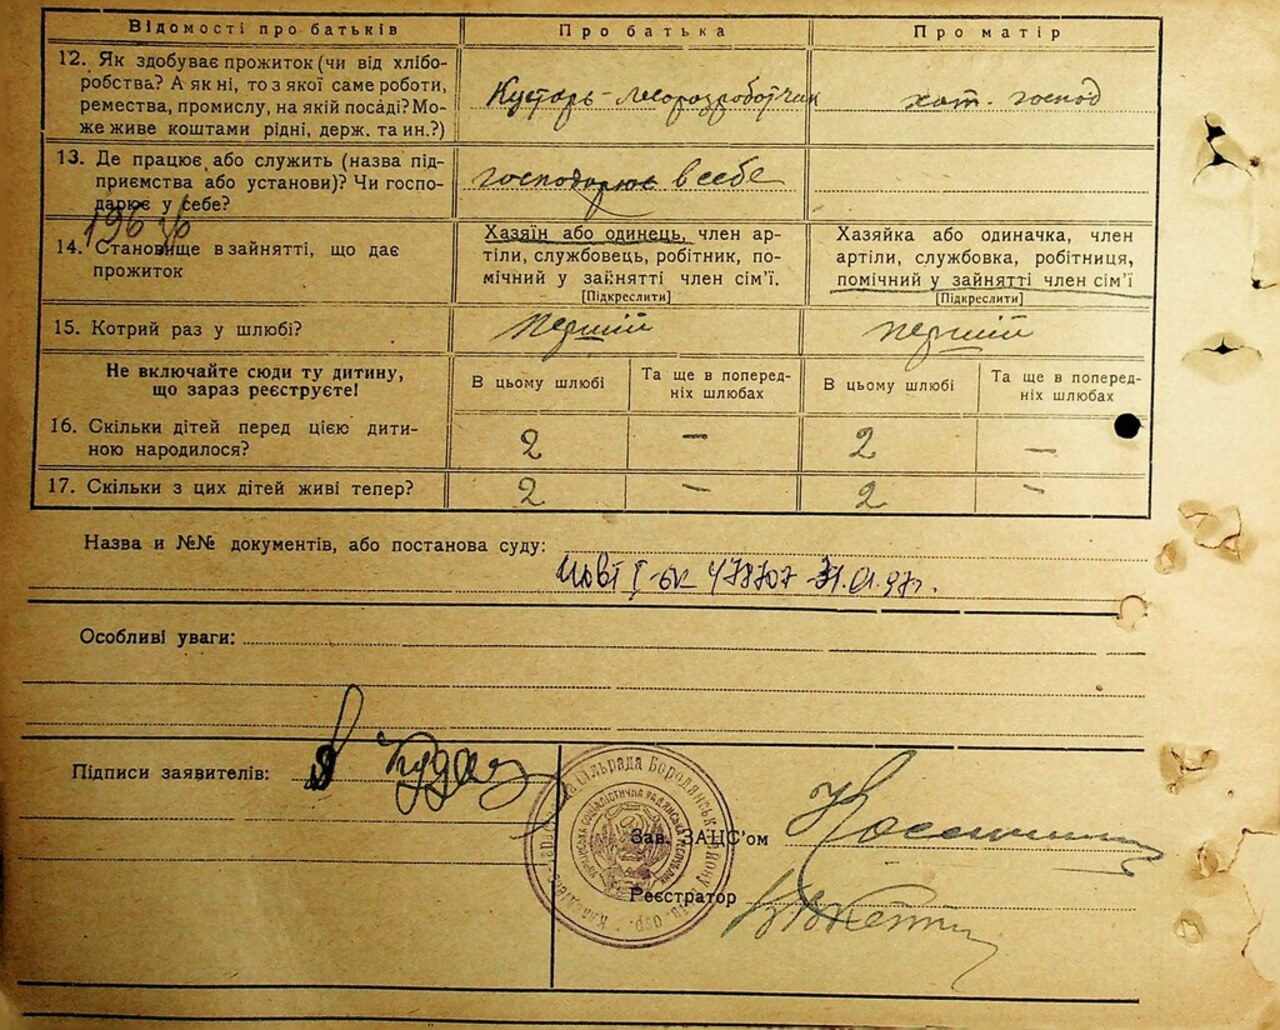 Відомості про батьків
Про батька
Про матір
12. Як здобуває прожиток (чи від хлібо-
робства? А як ні, то з якої саме роботи,
ремества, промислу, на якій посаді? Мо-
же живе коштами рідні, держ. та ин.?)
Кустарь-лесоразработчик
хат. господ
13. Де працює або служить (назва під-
приємства або установи)? Чи госпо-
дарює у себе?
господарює в себе
14. Становище в зайнятті, що дає
прожиток
Хазяїн або одинець, член ар-
тіли, службовець, робітник, по-
мічний у зайнятті член сім'ї.
[Підкреслити]
Хазяйка або одиначка, член
артіли, службовка, робітниця,
помічний у зайнятті член сім'ї
[Підкреслити]
15. Котрий раз у шлюбі?
перший
перший
Не включайте сюди ту дитину,
що зараз реєструєте!
В цьому шлюбі
Та ще в поперед-
ніх шлюбах
В цьому шлюбі
Та ще в поперед-
ніх шлюбах
16. Скільки дітей перед цією дити-
ною народилося?
2
—
2
—
17. Скільки з цих дітей живі тепер?
2
—
2
—
Назва и №№ документів, або постанова суду:
478707 31.01.97г.
Особливі уваги:
Підписи заявителів:
Зав. ЗАЦС'ом
Реєстратор
Сільрада Бородянськ